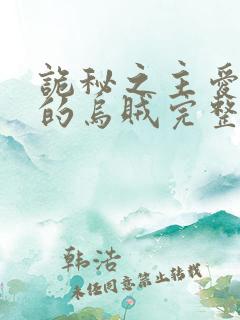 诡秘之主爱
的乌贼完整
韩浩
未经同意禁止转载